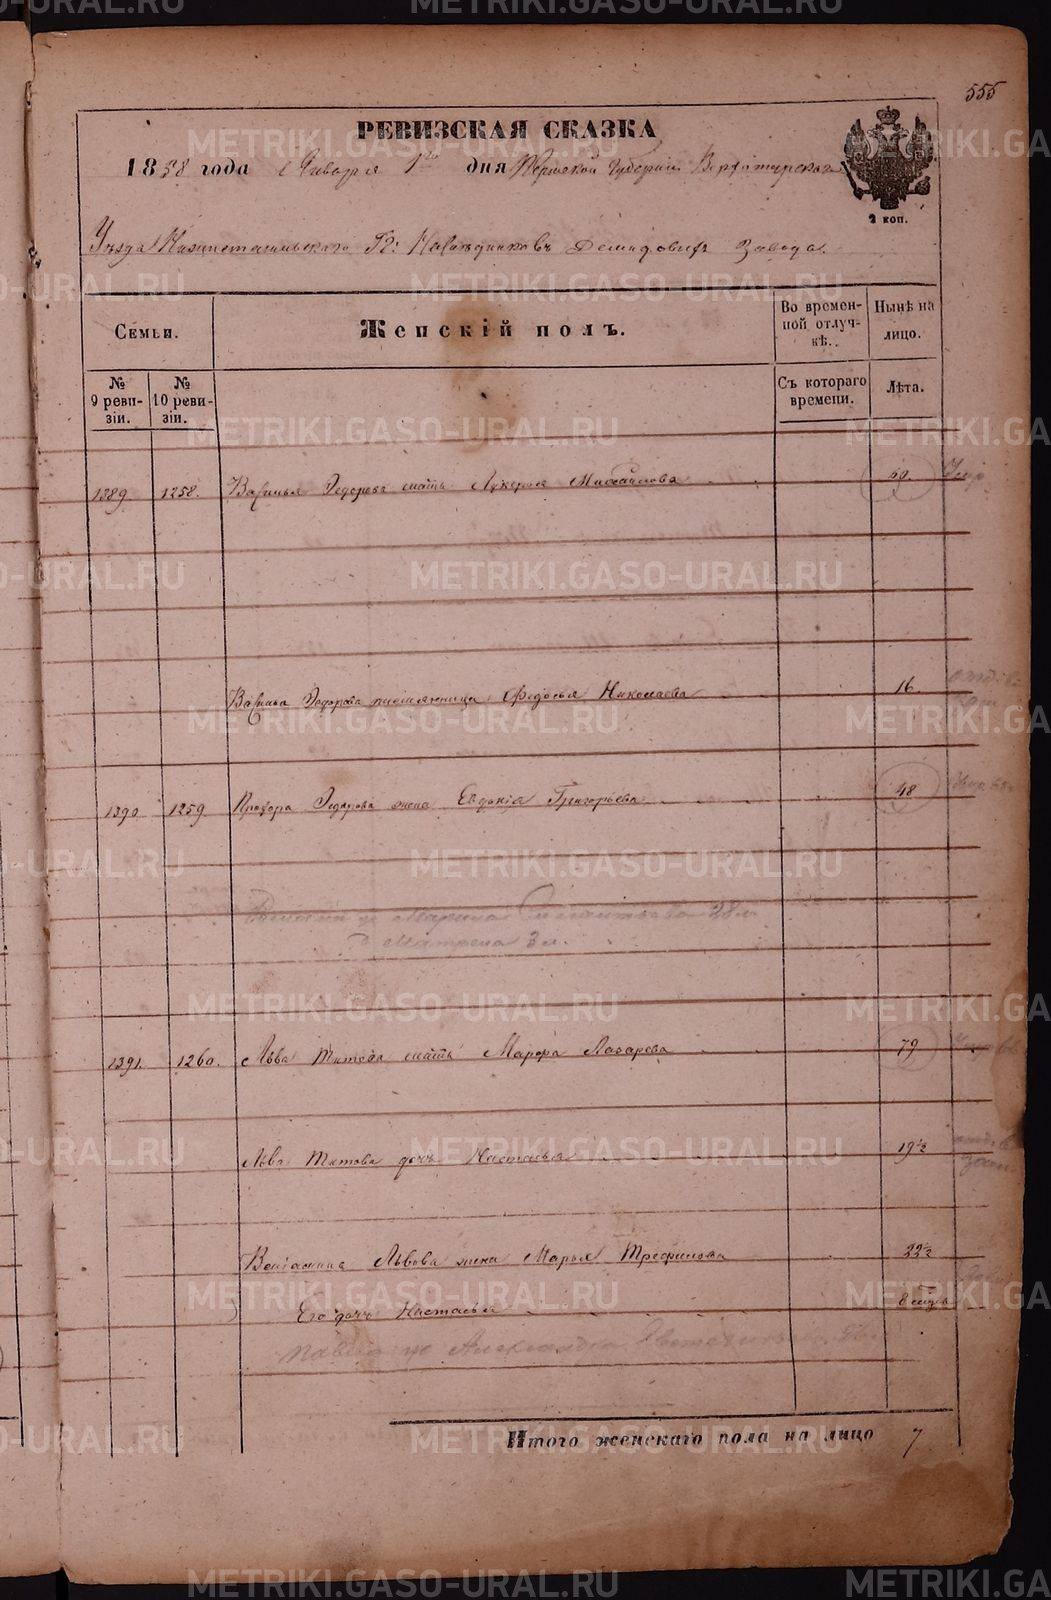 555
РЕВИЗСКАЯ СКАЗКА
1858 года Января 1го дня Пермской Губернии Верхотурского
2 коп.
Уезда Нижнетагильского Гг: Наследниковъ Демидовыхъ Завода.
Семьи.
Женскій полъ.
Во временной отлучкѣ.
Нынѣ на лицо.
№ 9 ревизіи.
№ 10 ревизіи.
Съ котораго времени.
Лѣта.
1389 1258. Федорова мать Лукерья Михайлова
Федорова племянница Федосья Николаева 16
1390 1259 Прохора Федорова жена Евдокія Григорьева 48
жо Марина 28 л
Д Матрена 3 л.
1391. 1260. Льва Титова мать Марфа Лазарева 79
Льва Титова дочь Настасья 19½
Веніамина Львова жена Марья Трефилова 22½
Его дочь Настасья 8 мцъ
Павла жо Александра
Итого женскаго пола на лицо 7
METRIKI.GASO-URAL.RU